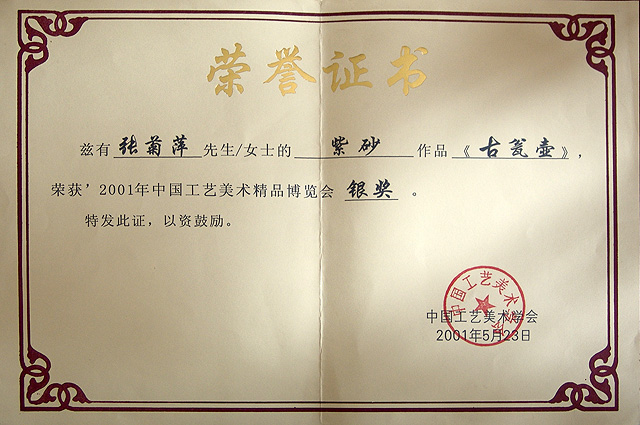 荣誉证书
兹有 张菊萍 先生/女士的 紫砂 作品《古瓮壶》，
荣获’2001年中国工艺美术精品博览会 银奖 。
特发此证，以资鼓励。
中国工艺美术学会
中国工艺美术学会
2001年5月23日